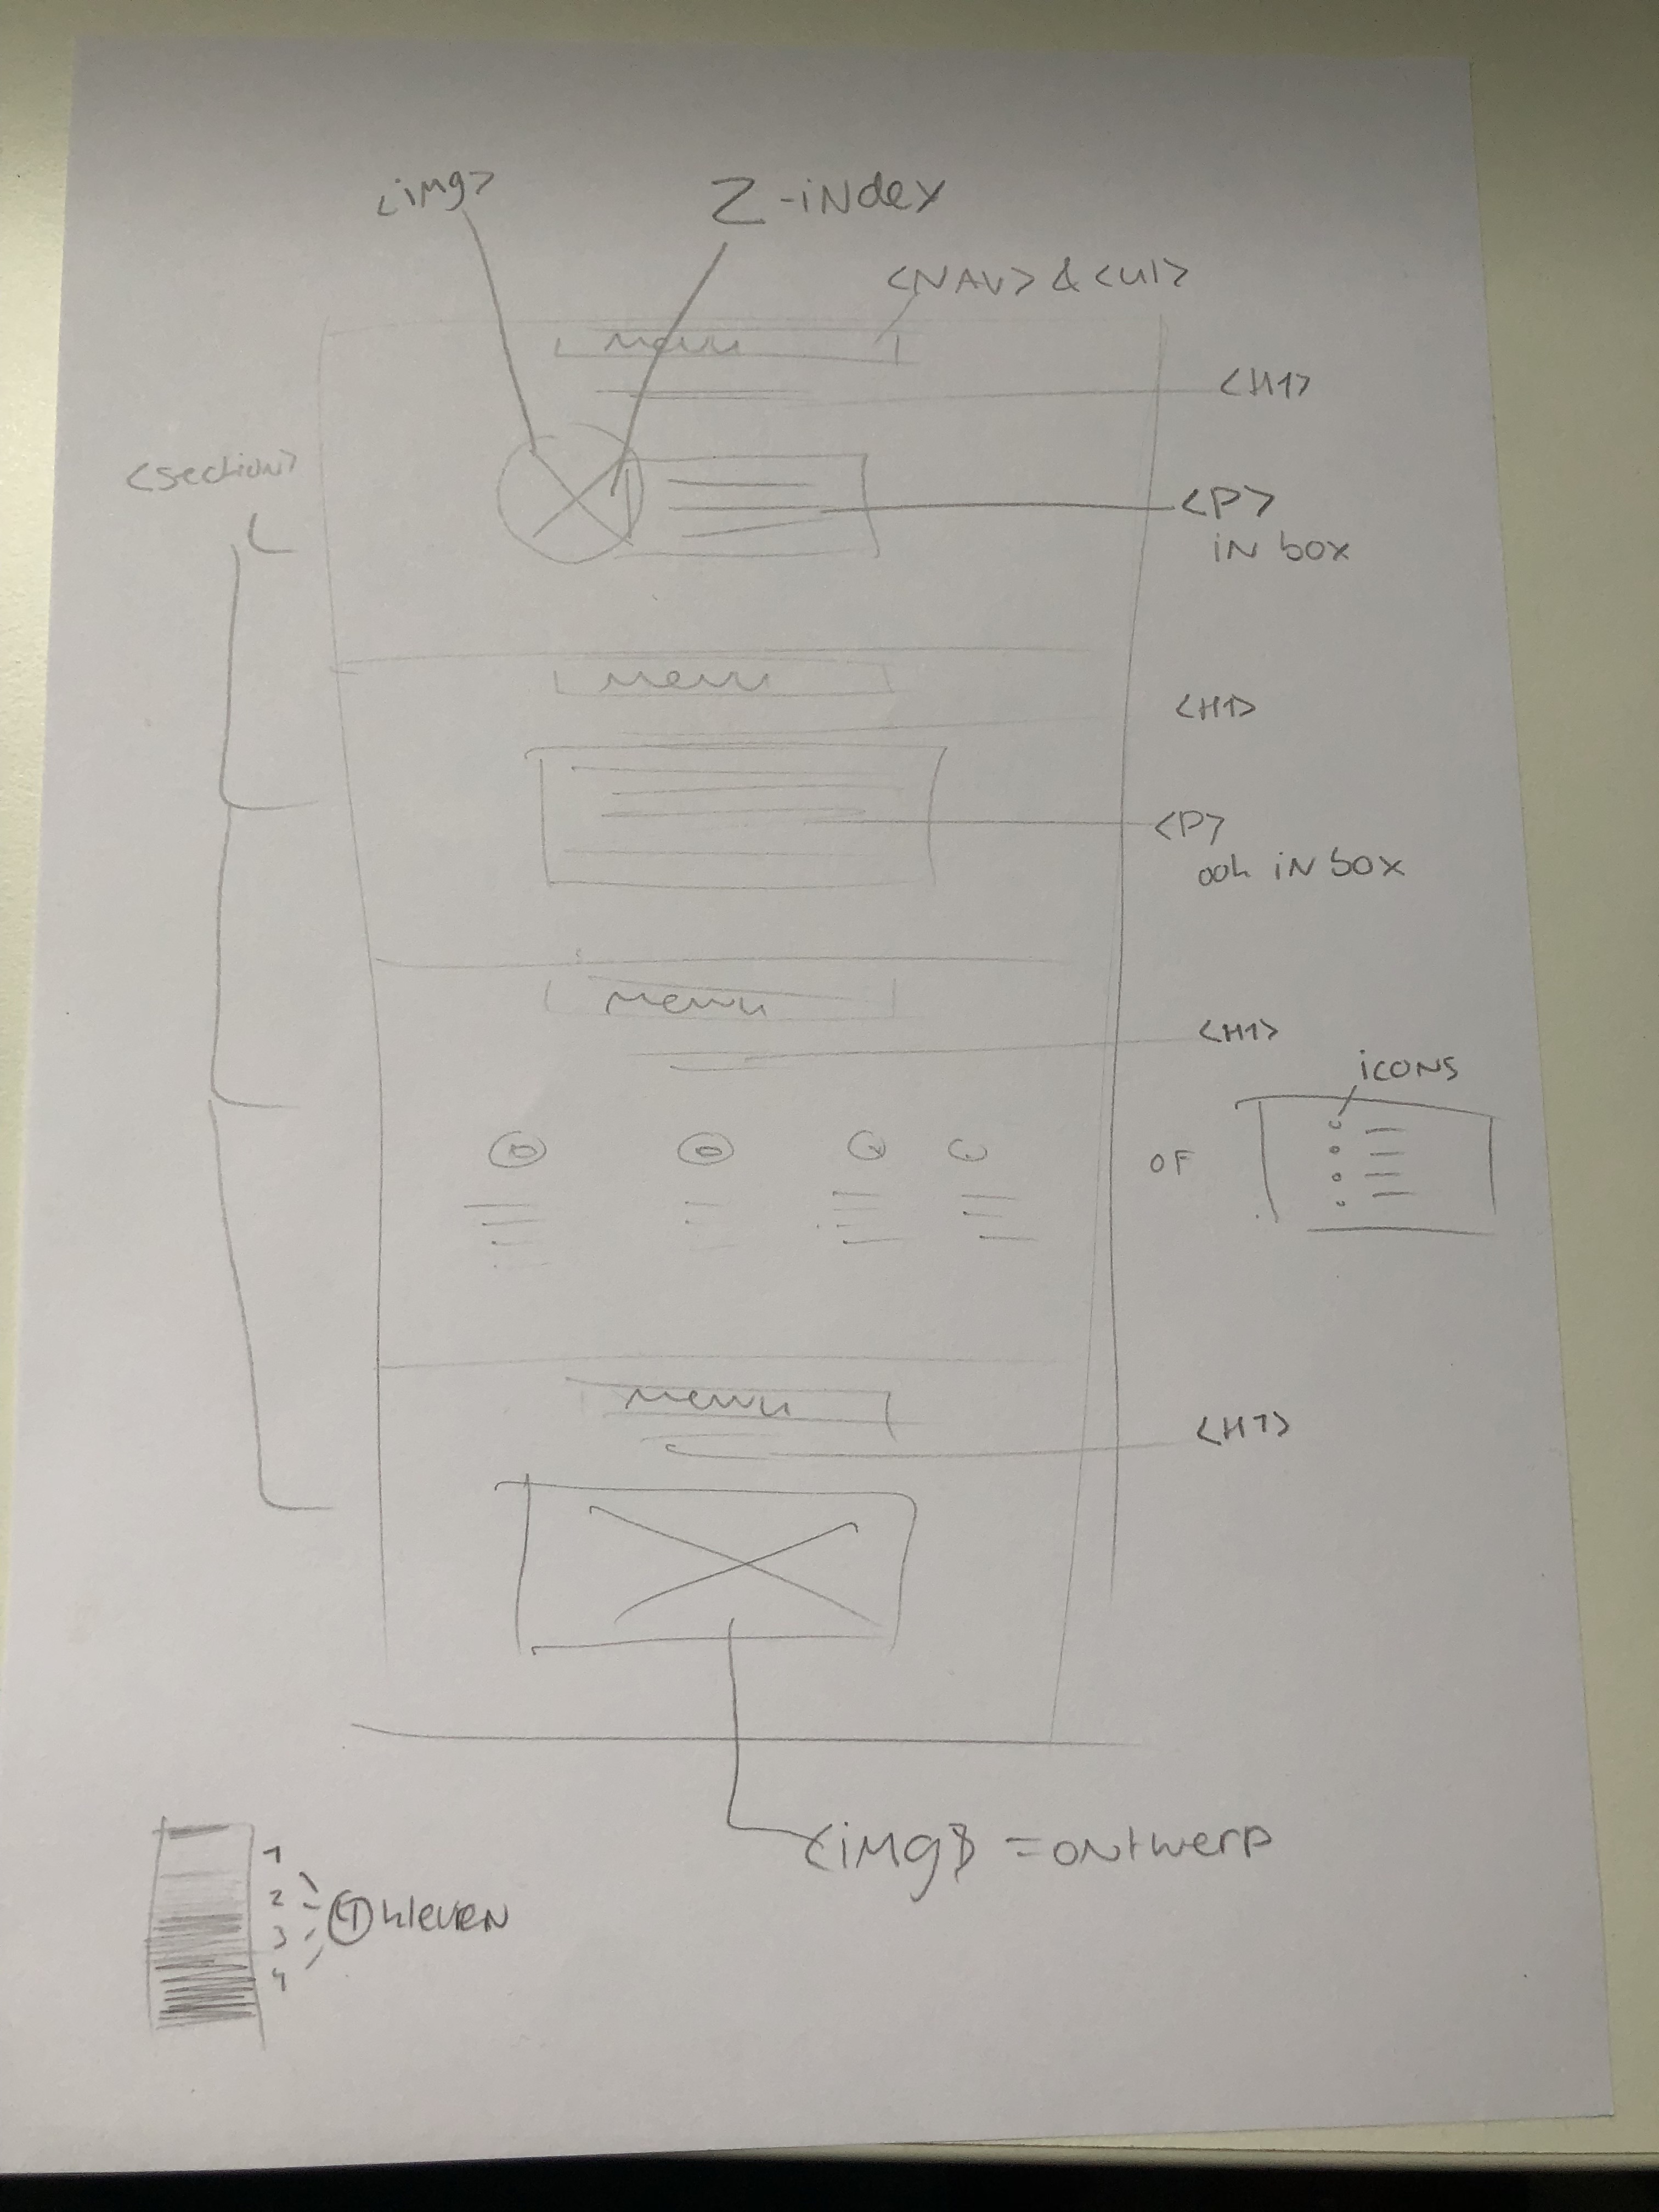 <img>
Z-index
<NAV> & <ul>
menu
<H1>
<section>
<P>
in box
menu
<H1>
<P>
ook in box
menu
<H1>
icons
OF
menu
<H1>
<img> = ontwerp
1
2
3
4
kleuren